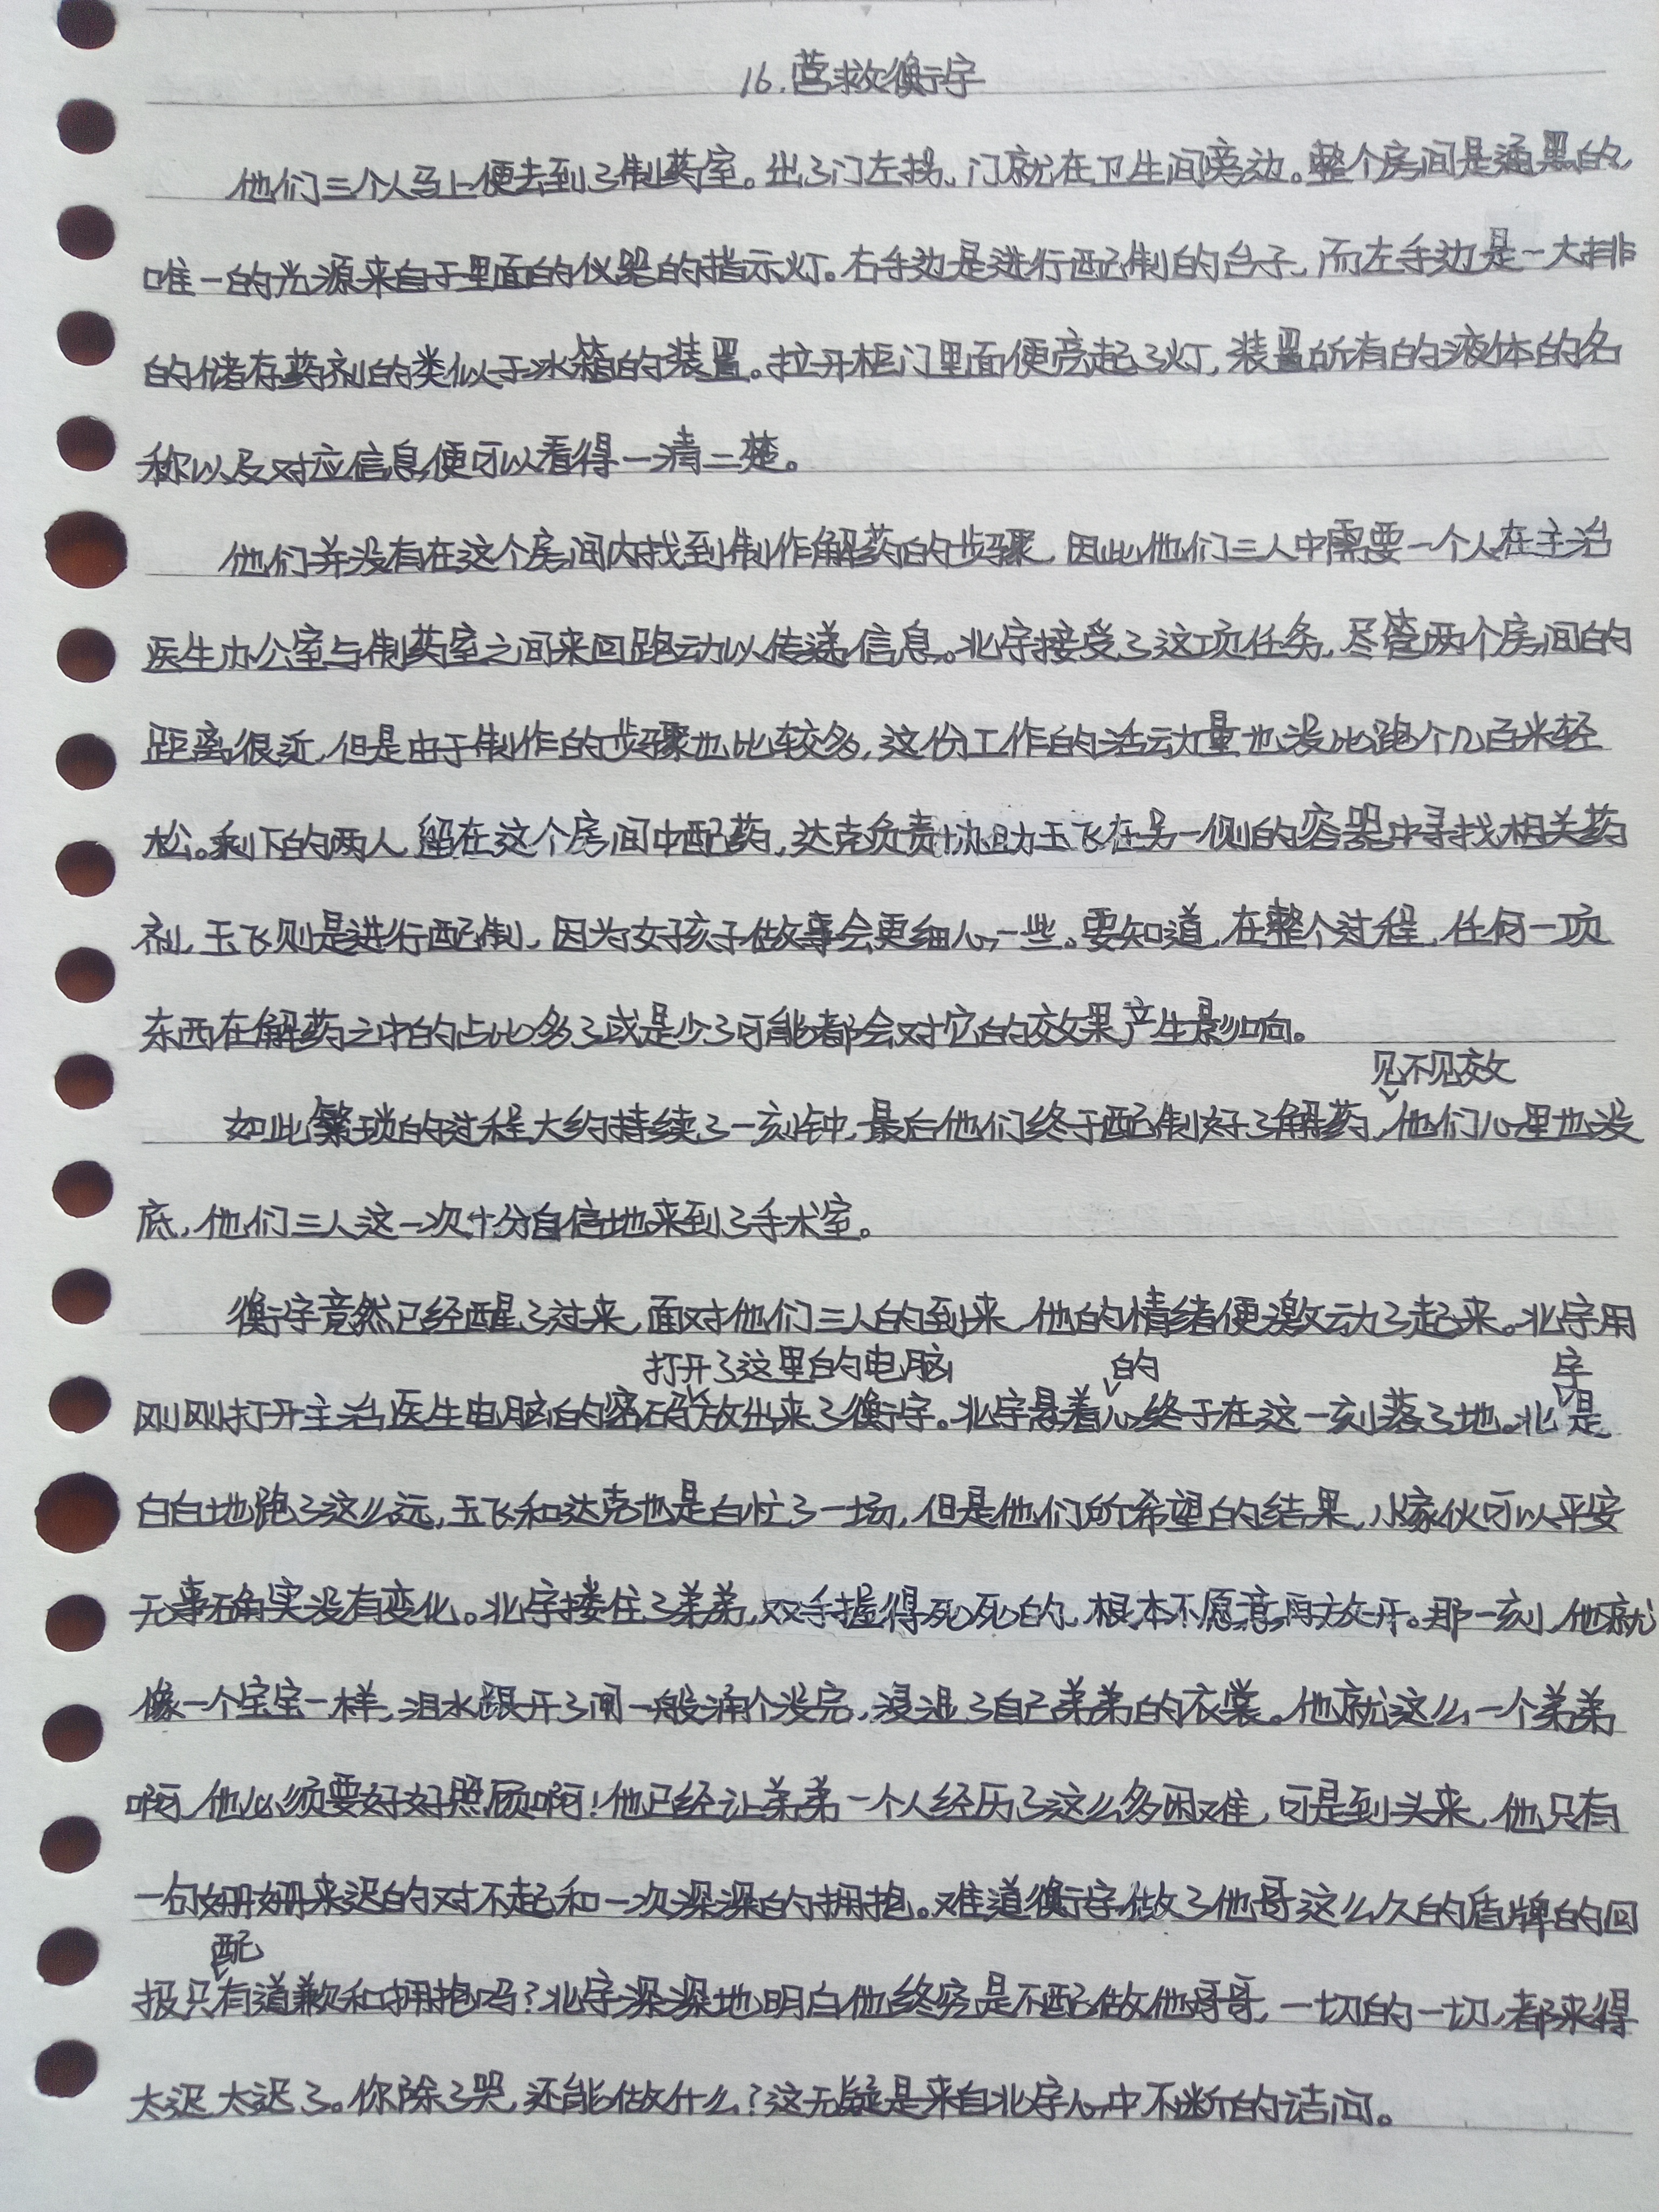 16.营救衡宇
他们三个人马上便去到了制药室。出了门左拐，门就在卫生间旁边。整个房间是通黑的，
唯一的光源来自于里面的仪器的指示灯。右手边是进行配制的台子，而左手边是一大排
的储存药剂的类似于冰箱的装置。拉开柜门里面便亮起了灯，装置所有的液体的名
称以及对应信息便可以看得一清二楚。
他们并没有在这个房间内找到制作解药的步骤，因此他们三人中需要一个人在主治
医生办公室与制药室之间来回跑动以传递信息。北宇接受了这项任务，尽管两个房间的
距离很近，但是由于制作的步骤也比较多，这份工作的活动量也没比跑个几百米轻
松。剩下的两人留在这个房间中配药，达克负责协助玉飞在另一侧的容器中寻找相关药
剂，玉飞则是进行配制，因为女孩子做事会更细心一些。要知道，在整个过程，任何一项
东西在解药之中的占比多了或是少了可能都会对它的效果产生影响。
见不见效
如此繁琐的过程大约持续了一刻钟，最后他们终于配制好了解药，他们心里也没
底，他们三人这一次十分自信地来到了手术室。
衡宇竟然已经醒了过来，面对他们三人的到来，他的情绪便激动了起来。北宇用
打开了这里的电脑 的 宇
刚刚打开主治医生电脑的密码放出来了衡宇。北宇悬着心终于在这一刻落了地。北是
白白地跑了这么远，玉飞和达克也是白忙了一场，但是他们所希望的结果，小家伙可以平安
无事确实没有变化。北宇搂住了弟弟，双手握得死死的，根本不愿意再放开。那一刻，他就
像一个宝宝一样，泪水跟开了闸一般涌个没完，浸湿了自己弟弟的衣裳。他就这么一个弟弟
啊，他必须要好好照顾啊！他已经让弟弟一个人经历了这么多困难，可是到头来，他只有
一句姗姗来迟的对不起和一次深深的拥抱。难道衡宇做了他哥这么久的盾牌的回
配
报只有道歉和拥抱吗？北宇深深地明白他终究是不配做他哥哥，一切的一切，都来得
太迟太迟了。你除了哭，还能做什么？这无疑是来自北宇心中不断的诘问。